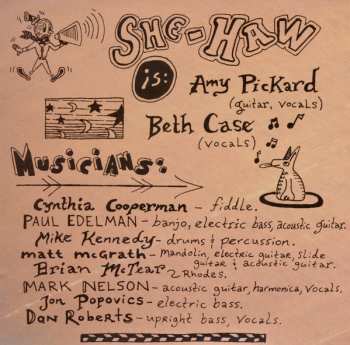 SHE-HAW
is:
Amy Pickard
(guitar, vocals)
Beth Case
(vocals)
Musicians:
Cynthia Cooperman - fiddle.
PAUL EDELMAN - banjo, electric bass, acoustic guitar.
Mike Kennedy - drums & percussion.
matt mcGrath - Mandolin, electric guitar, slide
guitar & acoustic guitar.
Brian McTear 2 Rhodes.
MARK NELSON - acoustic guitar, harmonica, vocals.
Jon Popovics - electric bass.
Dan Roberts - upright bass, vocals.